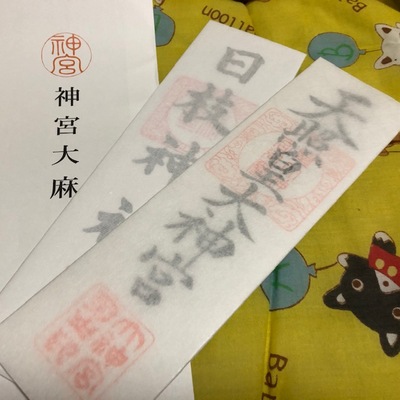 神宮
神宮大麻
日枝神社
天照皇大神宮
Balloon
Ba